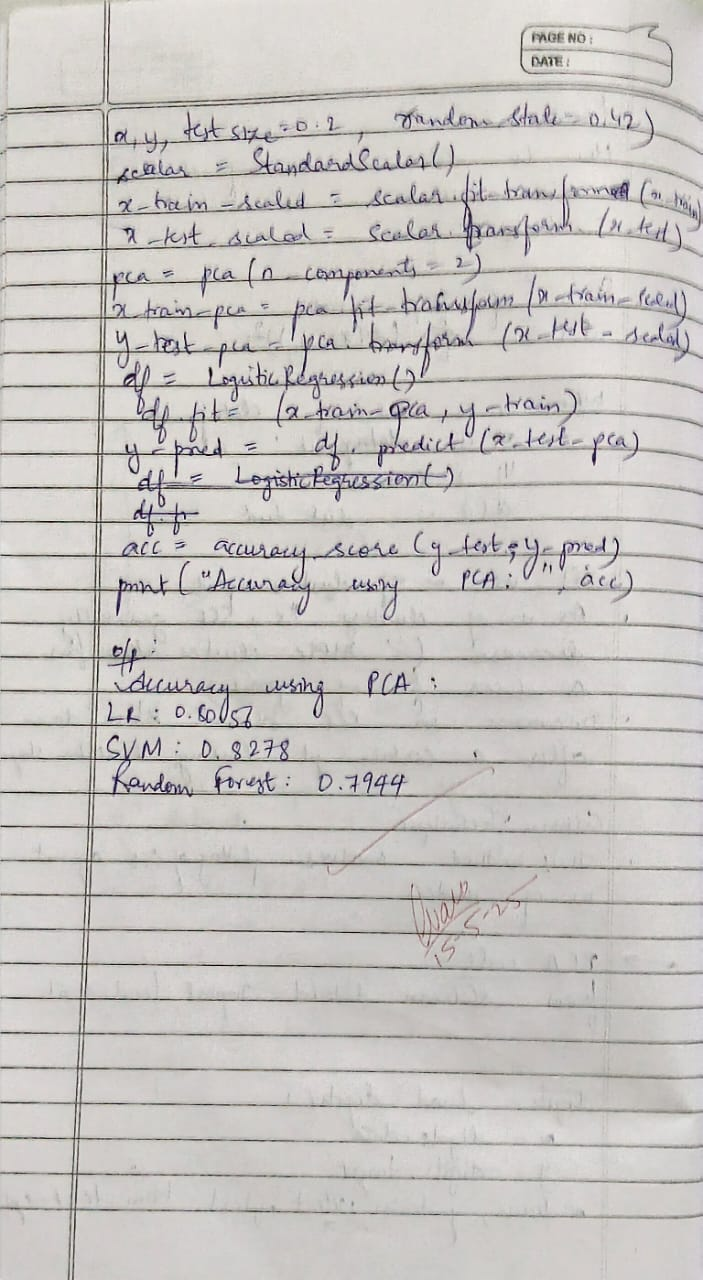 PAGE NO :
DATE :
x, y, test size = 0.2, random state = 0.42)
scalar = StandardScalar()
x-train-scaled = scalar.fit-transformed (x-train)
x-test-scaled = scalar.transform (x-test)
pca = pca (n-components = 2)
x-train-pca = pca fit-transform (x-train-scaled)
y-test-pca = pca.transform (x-test-scaled)
df = LogisticRegression()
df.fit = (x-train-pca, y-train)
y-pred = df.predict (x-test-pca)
df = LogisticRegression()
df.f
acc = accuracy-score (y-test, y-pred)
print ("Accuracy using PCA: ", acc)
o/p:
Accuracy using PCA :
LR : 0.80056
SVM : 0.8278
Random Forest : 0.7944
15-5-25